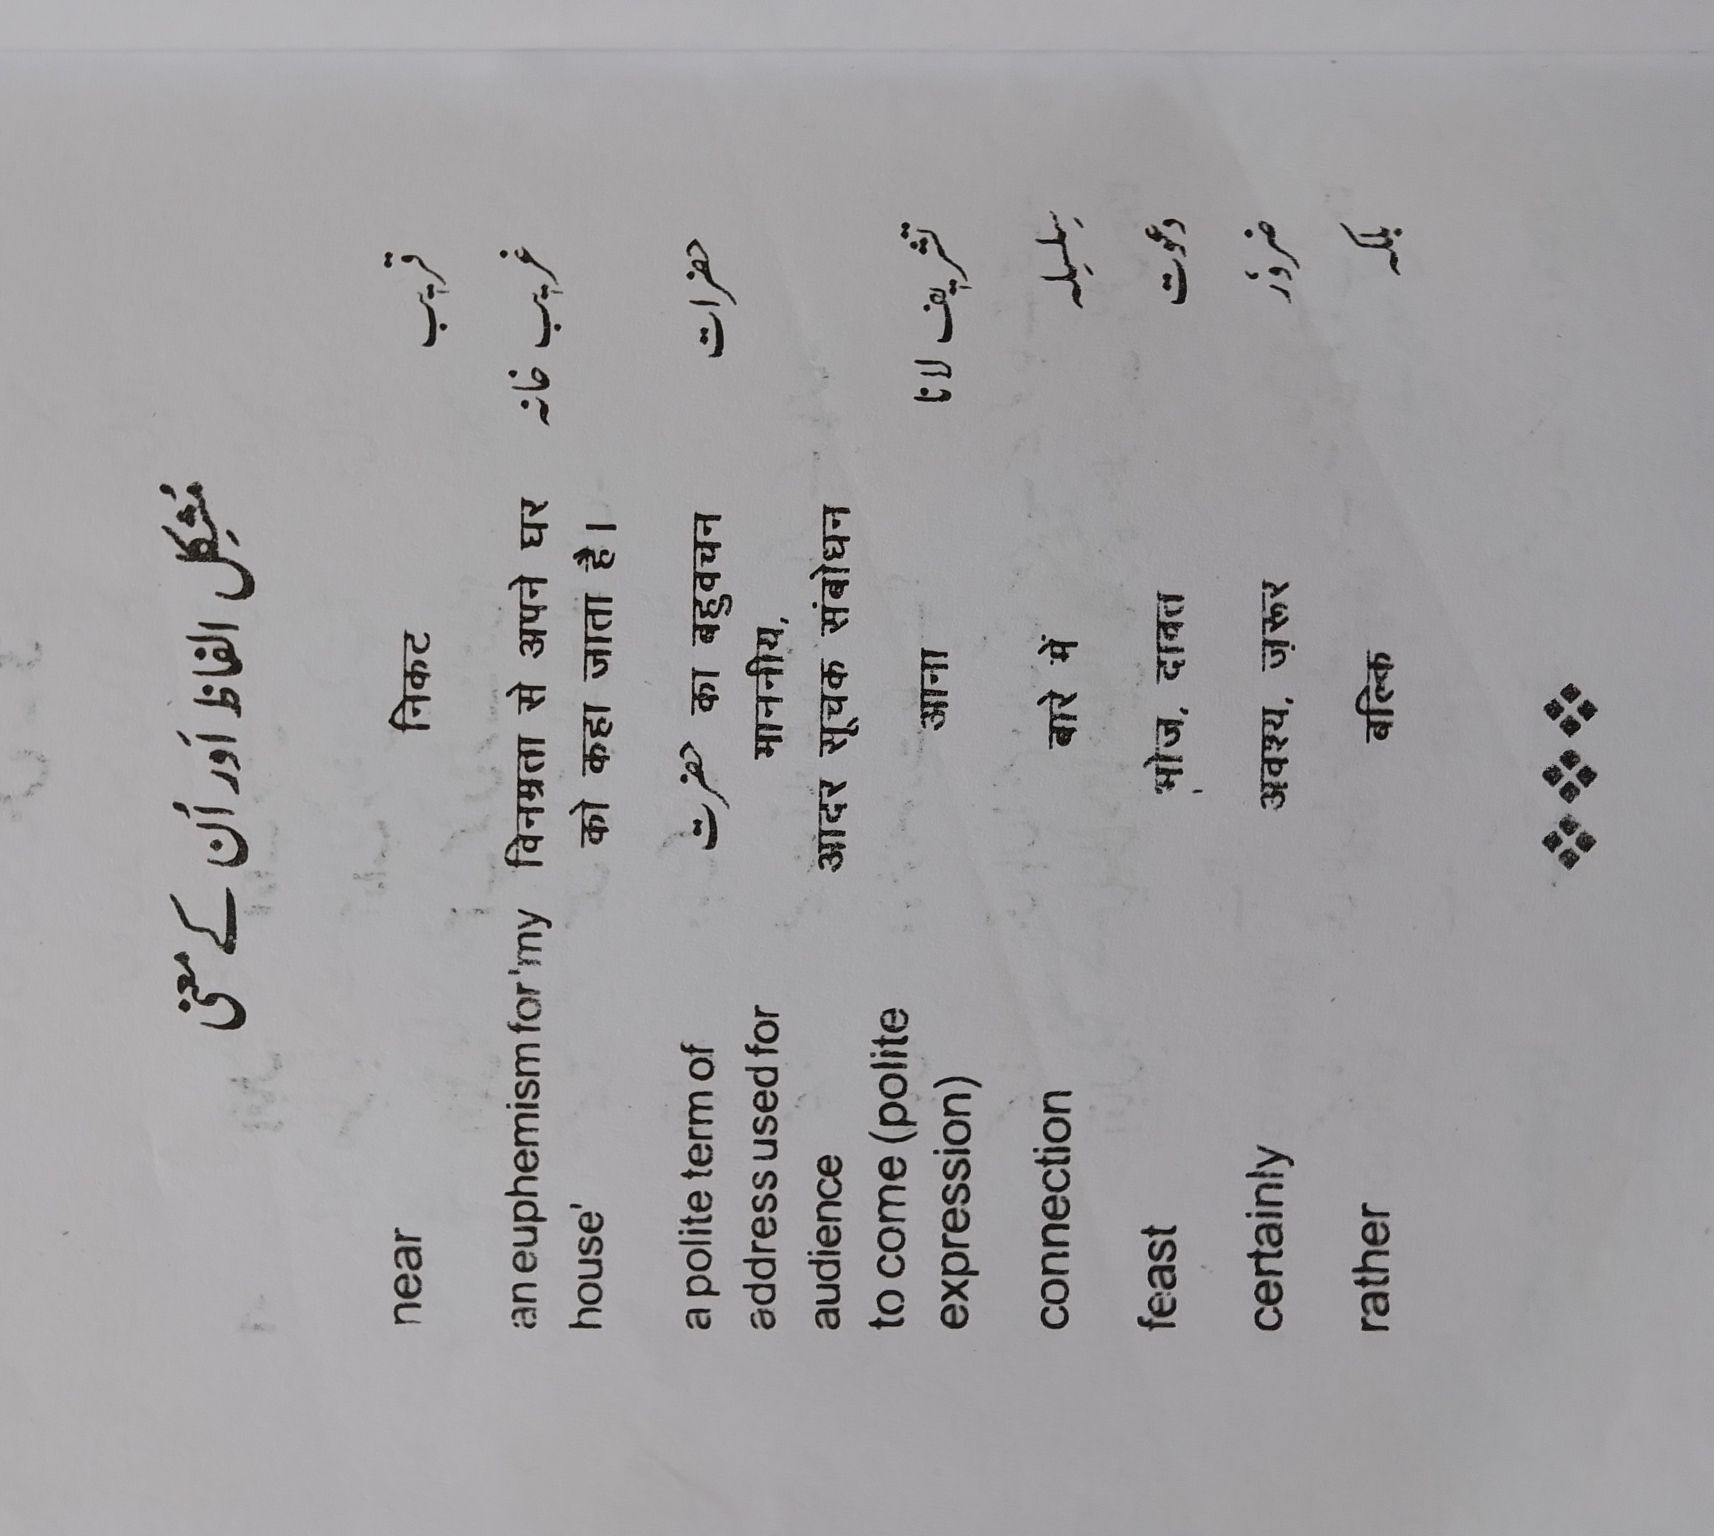 مُشکِل الفاظ اَور اُن کے معنی
near निकट قریب
an euphemism for 'my विनम्रता से अपने घर غریب خانہ
house' को कहा जाता है।
a polite term of حضرت का बहुवचन حضرات
address used for माननीय,
audience आदर सूचक संबोधन
to come (polite
expression) आना تشریف لانا
connection बारे में سِلسِلہ
feast भोज, दावत دعوت
certainly अवश्य, ज़रूर ضروُر
rather बल्कि بلکہ